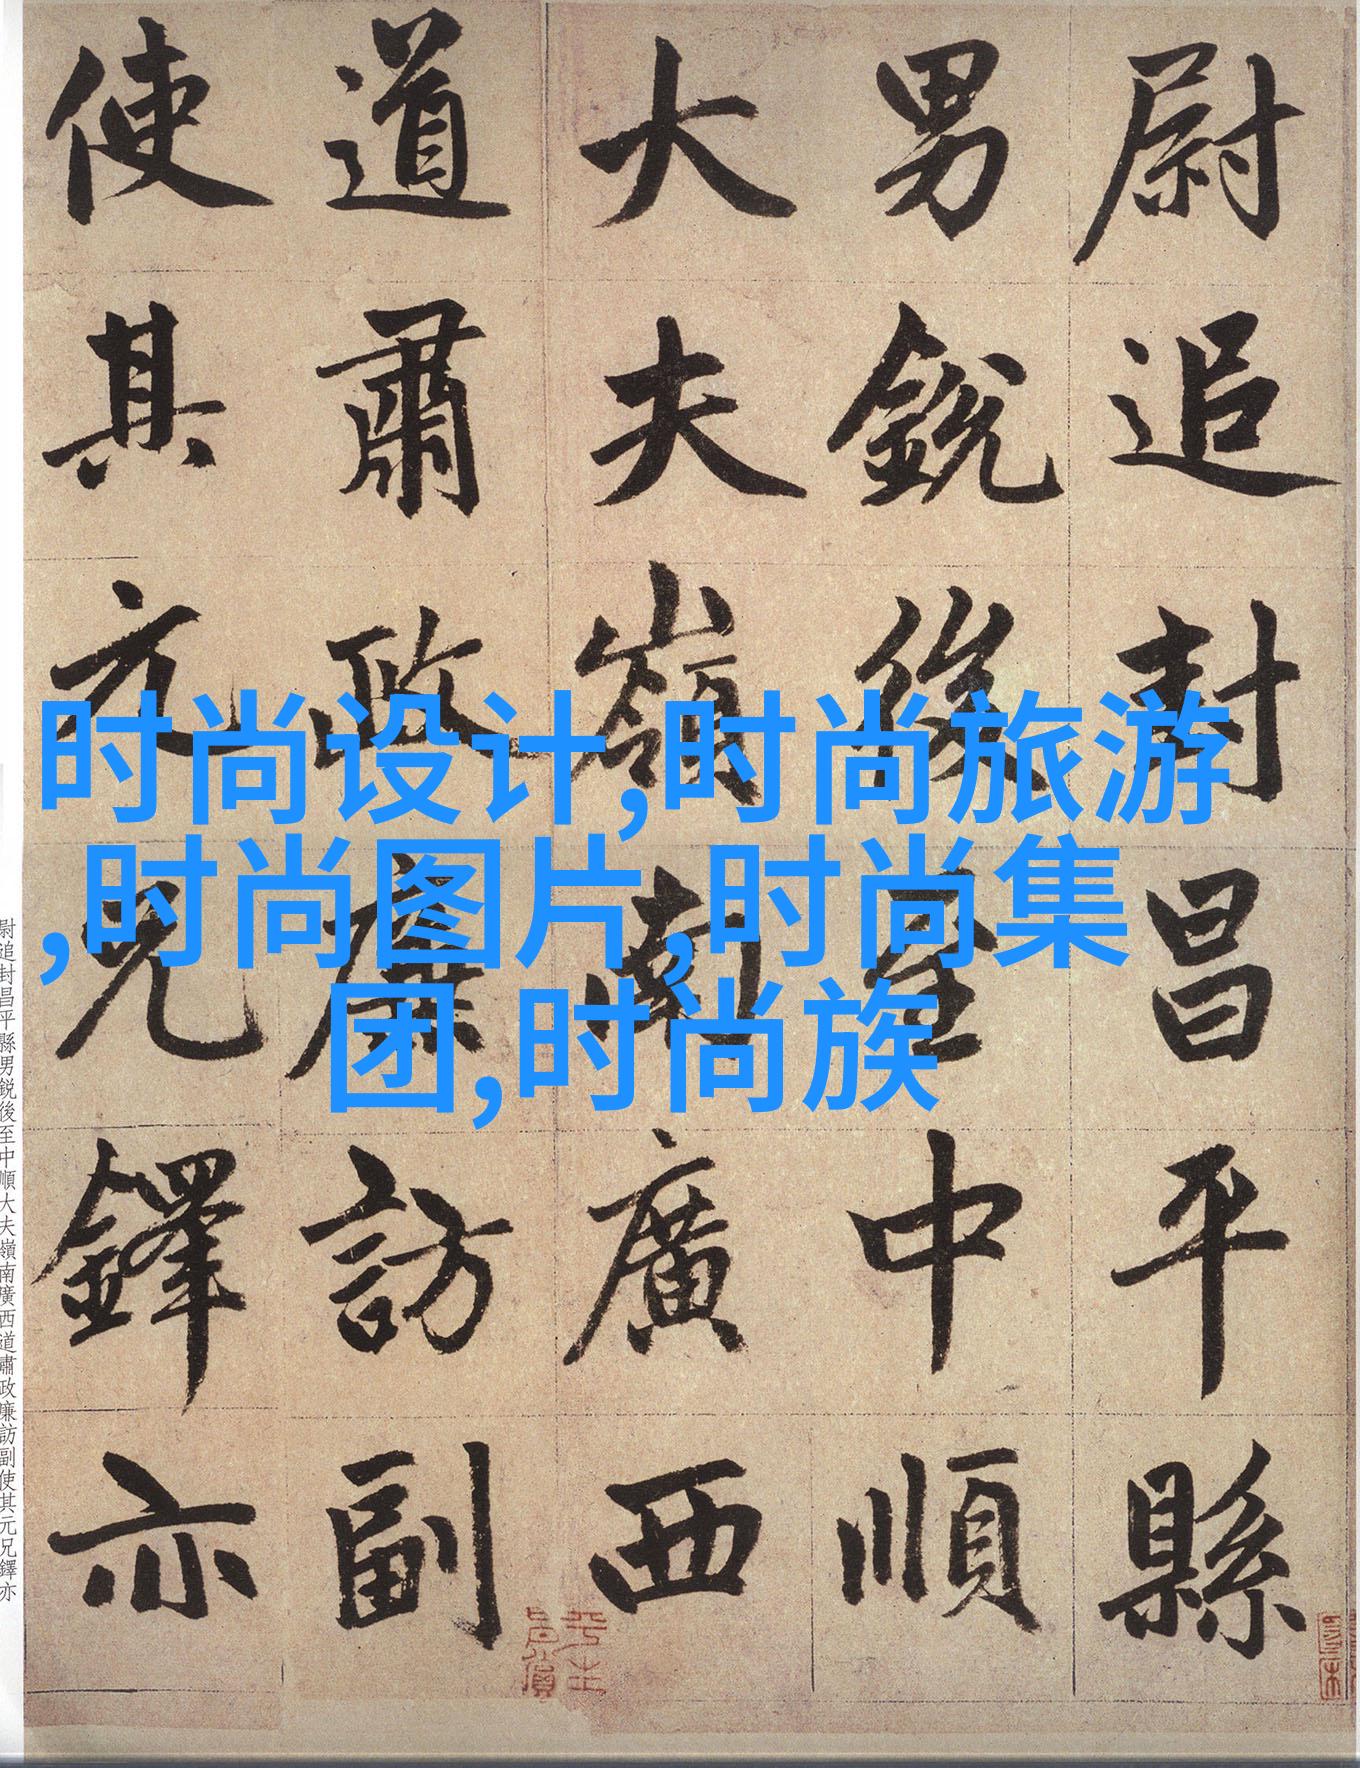 尉追封昌平縣
男銳後至中順
大夫嶺南廣西
道肅政廉訪副
使其元兄鐸亦
时尚设计,时尚旅游
,时尚图片,时尚集
团,时尚族
尉追封昌平縣男銳後至中順大夫嶺南廣西道肅政廉訪副使其元兄鐸亦